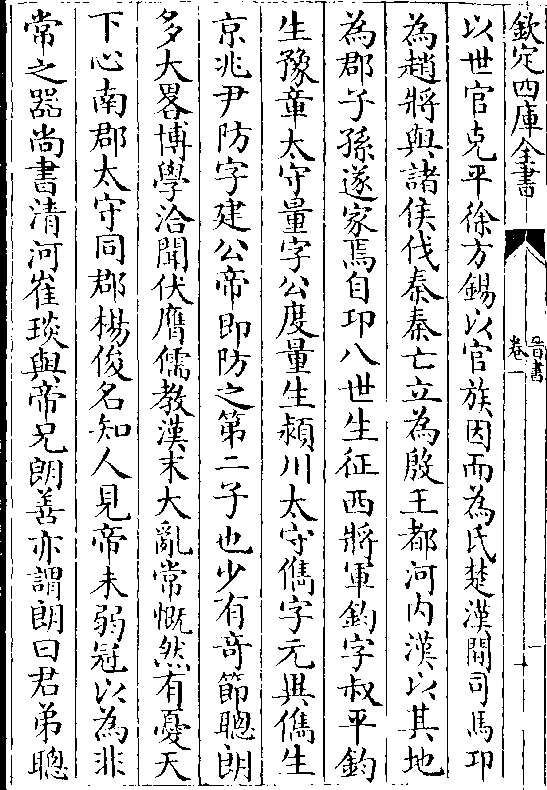 欽定四庫全書
晉書
卷一
一
以世官克平徐方錫以官族因而為氏楚漢間司馬卬
為趙將與諸侯伐秦秦亡立為殷王都河内漢以其地
為郡子孫遂家焉自卬八世生征西將軍鈞字叔平鈞
生豫章太守量字公度量生潁川太守儁字元異儁生
京兆尹防字建公帝即防之第二子也少有奇節聰朗
多大畧博學洽聞伏膺儒教漢末大亂常慨然有憂天
下心南郡太守同郡楊俊名知人見帝未弱冠以為非
常之器尚書清河崔琰與帝兄朗善亦謂朗曰君弟聰